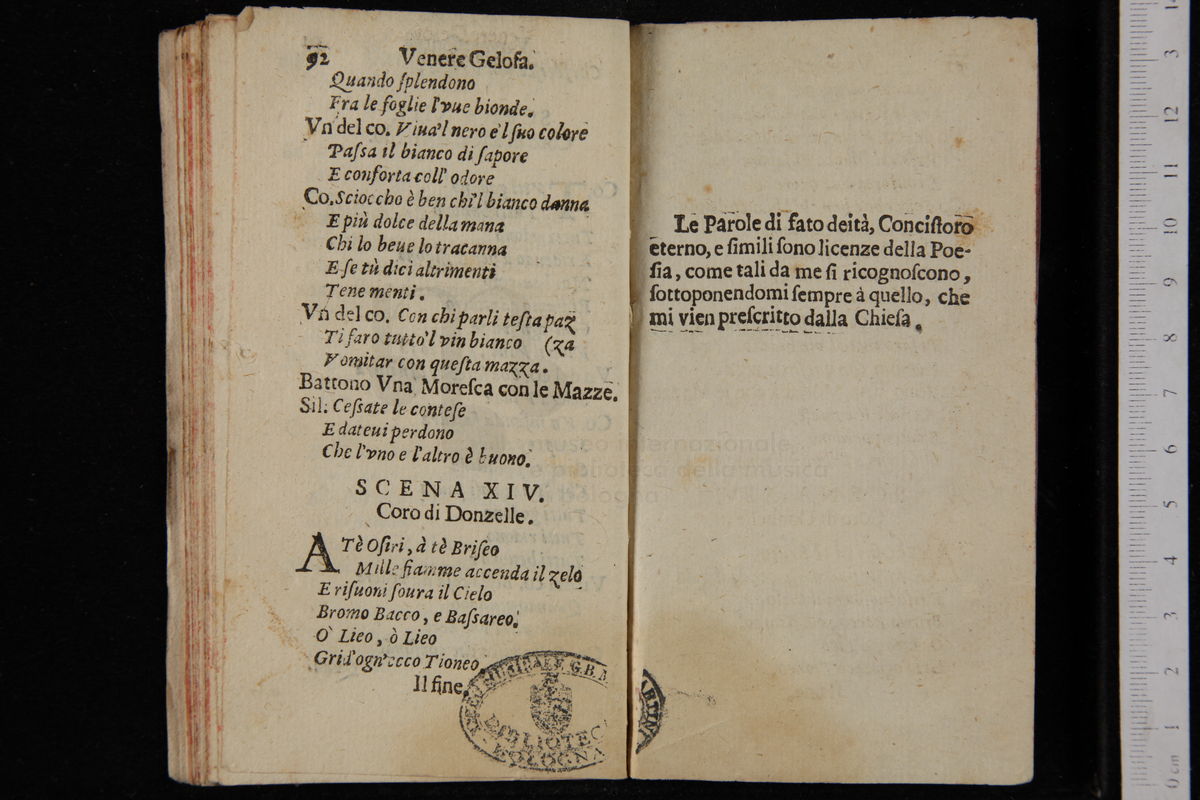 92 Venere Gelosa.
Quando ſplendono
Fra le foglie l'vue bionde.
Vn del co. Viua'l nero e'l ſuo colore
Paſsa il bianco di ſapore
E conforta coll' odore
Co. Scioccho è ben chi'l bianco danna
E più dolce della mana
Chi lo beue lo tracanna
E ſe tù dici altrimenti
Te ne menti.
Vn del co. Con chi parli teſta paz
Ti faro tutto'l vin bianco (za
Vomitar con queſta mazza.
Battono Vna Moreſca con le Mazze.
Sil: Ceſsate le conteſe
E dateui perdono
Che l'vno e l'altro è buono.
SCENA XIV.
Coro di Donzelle.
A Tè Oſiri, à tè Briſeo
Mille fiamme accenda il zelo
E riſuoni ſoura il Cielo
Bromo Bacco, e Baſsareo.
O' Lieo, ò Lieo
Grid'ogn'ecco Tioneo.
Il fine.
LICEO MUSICALE G.B. MARTINI
BIBLIOTEC
BOLOGNA
Le Parole di fato deità, Conciſtoro
eterno, e ſimili ſono licenze della Poe-
ſia, come tali da me ſi ricognoſcono,
ſottoponendomi ſempre à quello, che
mi vien preſcritto dalla Chieſa.
museo internazionale
e biblioteca della musica
bologna
14
13
12
11
10
9
8
7
6
5
4
3
2
1
0 cm